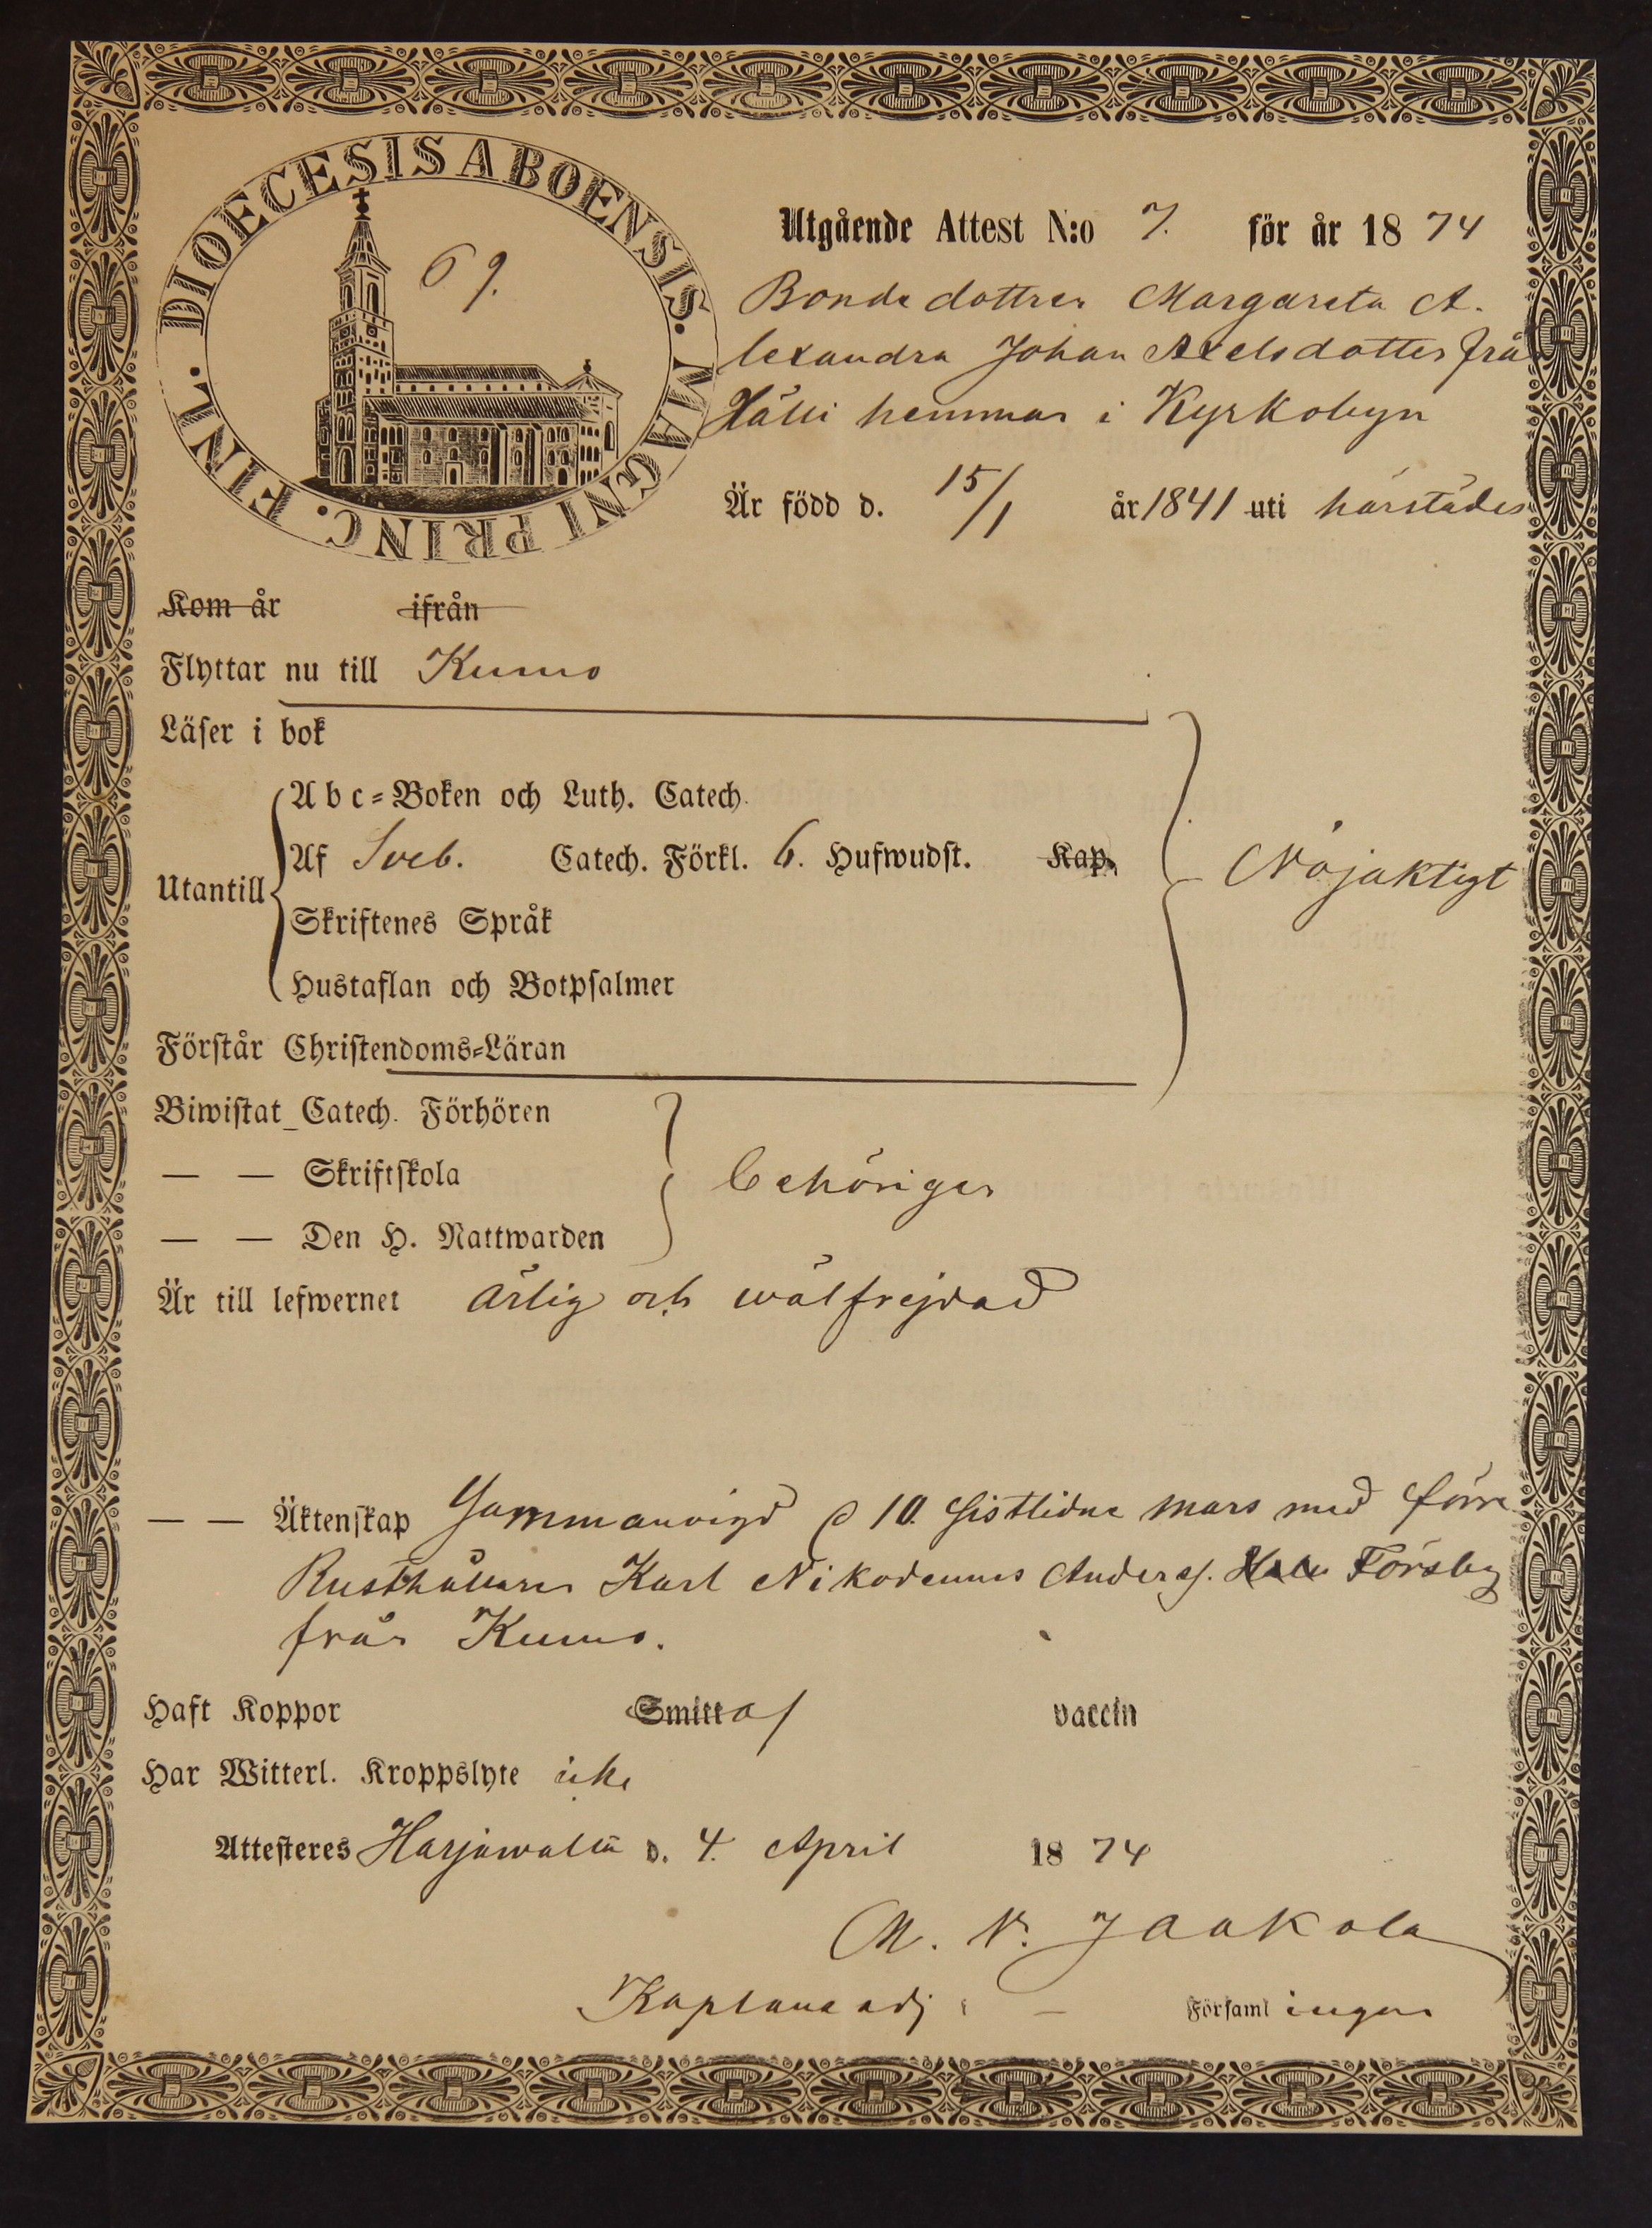 DIOECESIS ABOENSIS. MAGNI PRINC. FINL.
69.
Utgående Attest N:o 7. för år 1874
Bondedottren Margareta A-
lexandra Johan Axelsdotter från
Hälli hemman i Kyrkobyn
Är född d. 15/1 år 1841 uti härstädes
Kom år ifrån
Flyttar nu till Kumo
Läser i bok
Abc=Boken och Luth. Catech.
Utantill
Af Sveb. Catech. Förkl. 6. Hufwudst. Kap.
Nöjaktigt
Skriftenes Språk
Hustaflan och Botpsalmer
Förstår Christendoms=Läran
Biwistat Catech. Förhören
— — Skriftskola
behörigen
— — Den H. Nattwarden
Är till lefwernet ärlig och wälfrejdad
— — Äktenskap Sammanvigd d 10. sistlidne mars med förre
Rusthållaren Karl Nikodemus Anders. Försby
från Kumo.
Haft Koppor Smitta vaccin
Har Witterl. Kroppslyte icke
Attesteres Harjawalta d. 4. April 1874
M. N. Jaakola
Kaplans adj i — Församlingen